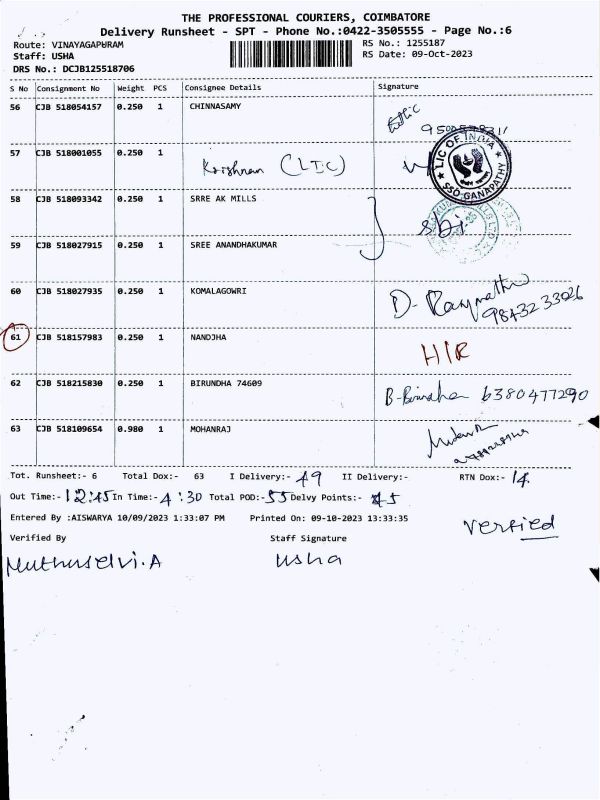 THE PROFESSIONAL COURIERS, COIMBATORE
Delivery Runsheet - SPT - Phone No.:0422-3505555 - Page No.:6
Route: VINAYAGAPURAM RS No.: 1255187
Staff: USHA RS Date: 09-Oct-2023
DRS No.: DCJB125518706
S No Consignment No Weight PCS Consignee Details Signature
56 CJB 518054157 0.250 1 CHINNASAMY
57 CJB 518001055 0.250 1 Krishnan (LIC) LIC OF INDIA SSO-GANAPATHY
58 CJB 518093342 0.250 1 SRRE AK MILLS
59 CJB 518027915 0.250 1 SREE ANANDHAKUMAR
60 CJB 518027935 0.250 1 KOMALAGOWRI D. 98432 33026
61 CJB 518157983 0.250 1 NANDJHA H/R
62 CJB 518215830 0.250 1 BIRUNDHA 74609 6380477290
63 CJB 518109654 0.980 1 MOHANRAJ
Tot. Runsheet:- 6 Total Dox:- 63 I Delivery:- 49 II Delivery:- RTN Dox:- 14
Out Time:- 12:45 In Time:- 4:30 Total POD:- 55 Delvy Points:- 45
Entered By :AISWARYA 10/09/2023 1:33:07 PM Printed On: 09-10-2023 13:33:35
Verfied
Verified By Staff Signature
Muthuselvi.A usha